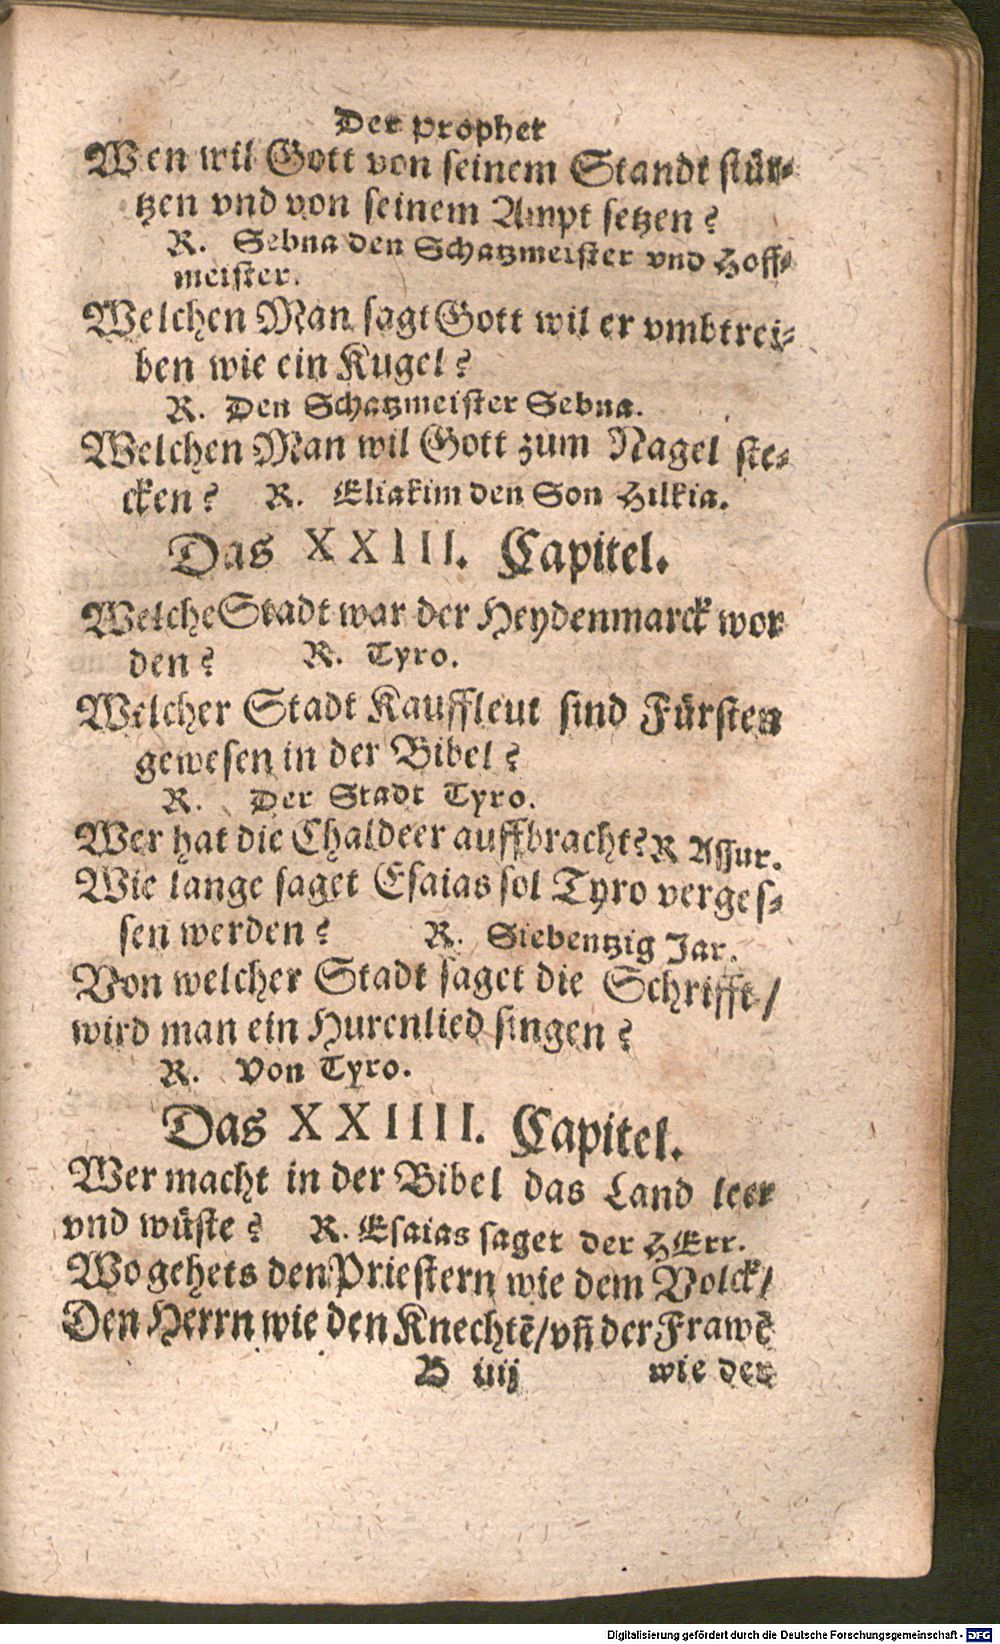 Der prophet
Wen wil Gott von seinem Standt stür-
tzen vnd von seinem Ampt setzen?
R. Sebna den Schatzmeister vnd Hoff-
meister.
Welchen Man sagt Gott wil er vmbtrei-
ben wie ein Kugel?
R. Den Schatzmeister Sebna.
Welchen Man wil Gott zum Nagel ste-
cken? R. Eliakim den Son Hilkia.
Das XXIII. Capitel.
Welche Stadt war der Heydenmarck wor
den? R. Tyro.
Welcher Stadt Kauffleut sind Fürsten
gewesen in der Bibel?
R. Der Stadt Tyro.
Wer hat die Chaldeer auffbracht? R Assur.
Wie lange saget Esaias sol Tyro verges-
sen werden? R. Siebentzig Jar.
Von welcher Stadt saget die Schrifft/
wird man ein Hurenlied singen?
R. Von Tyro.
Das XXIIII. Capitel.
Wer macht in der Bibel das Land leer
vnd wüste? R. Esaias saget der HErr.
Wo gehets den Priestern wie dem Volck/
Den Herrn wie den Knechtē/ vn̄ der Frawē
B iiij wie der
Digitalisierung gefördert durch die Deutsche Forschungsgemeinschaft - DFG